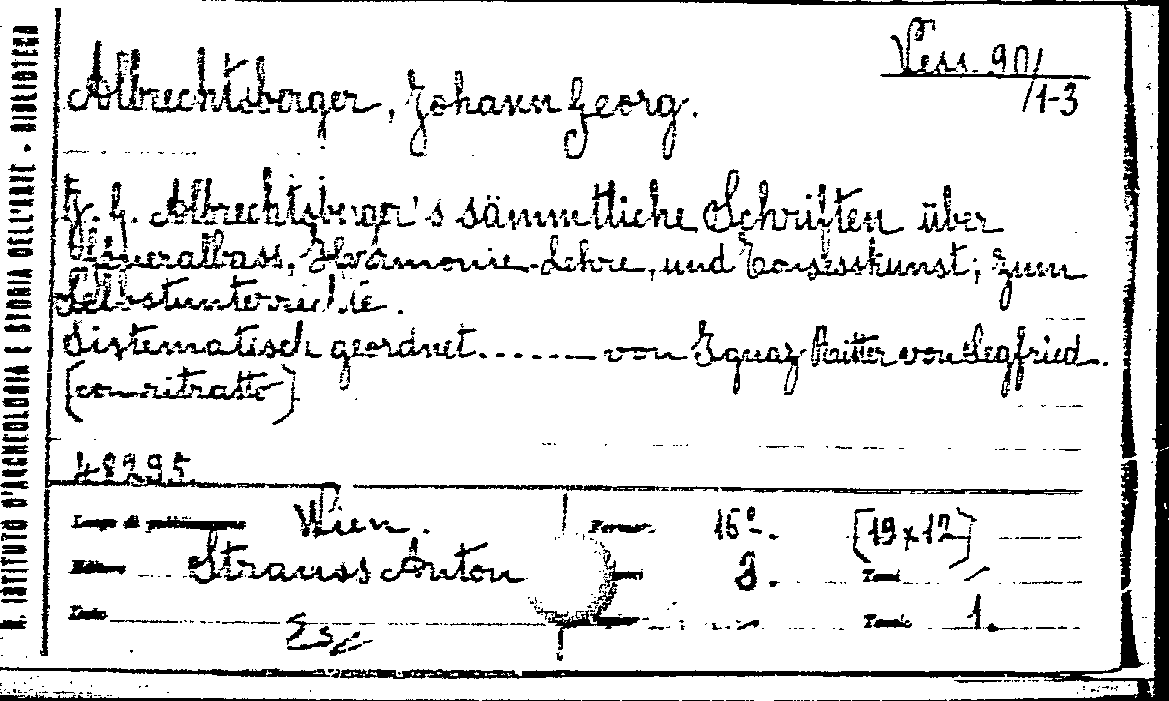 R. ISTITUTO D'ARCHEOLOGIA E STORIA DELL'ARTE - BIBLIOTECA
Vess. 90/1-3
Albrechtsberger, Johann Georg.
J. G. Albrechtsberger's sämmtliche Schriften über
Generalbass, Harmonie-Lehre, und Tonsesskunst; zum
Selbstunterrichte.
Sistematisch geordnet....... von Ignaz Ritter von Segfried.
[con ritratto]
48295
Luogo di pubblicazione Wien. Formato 16º. [19x12]
Editore Strauss Anton 3. Tomi
Data Tomo 1.